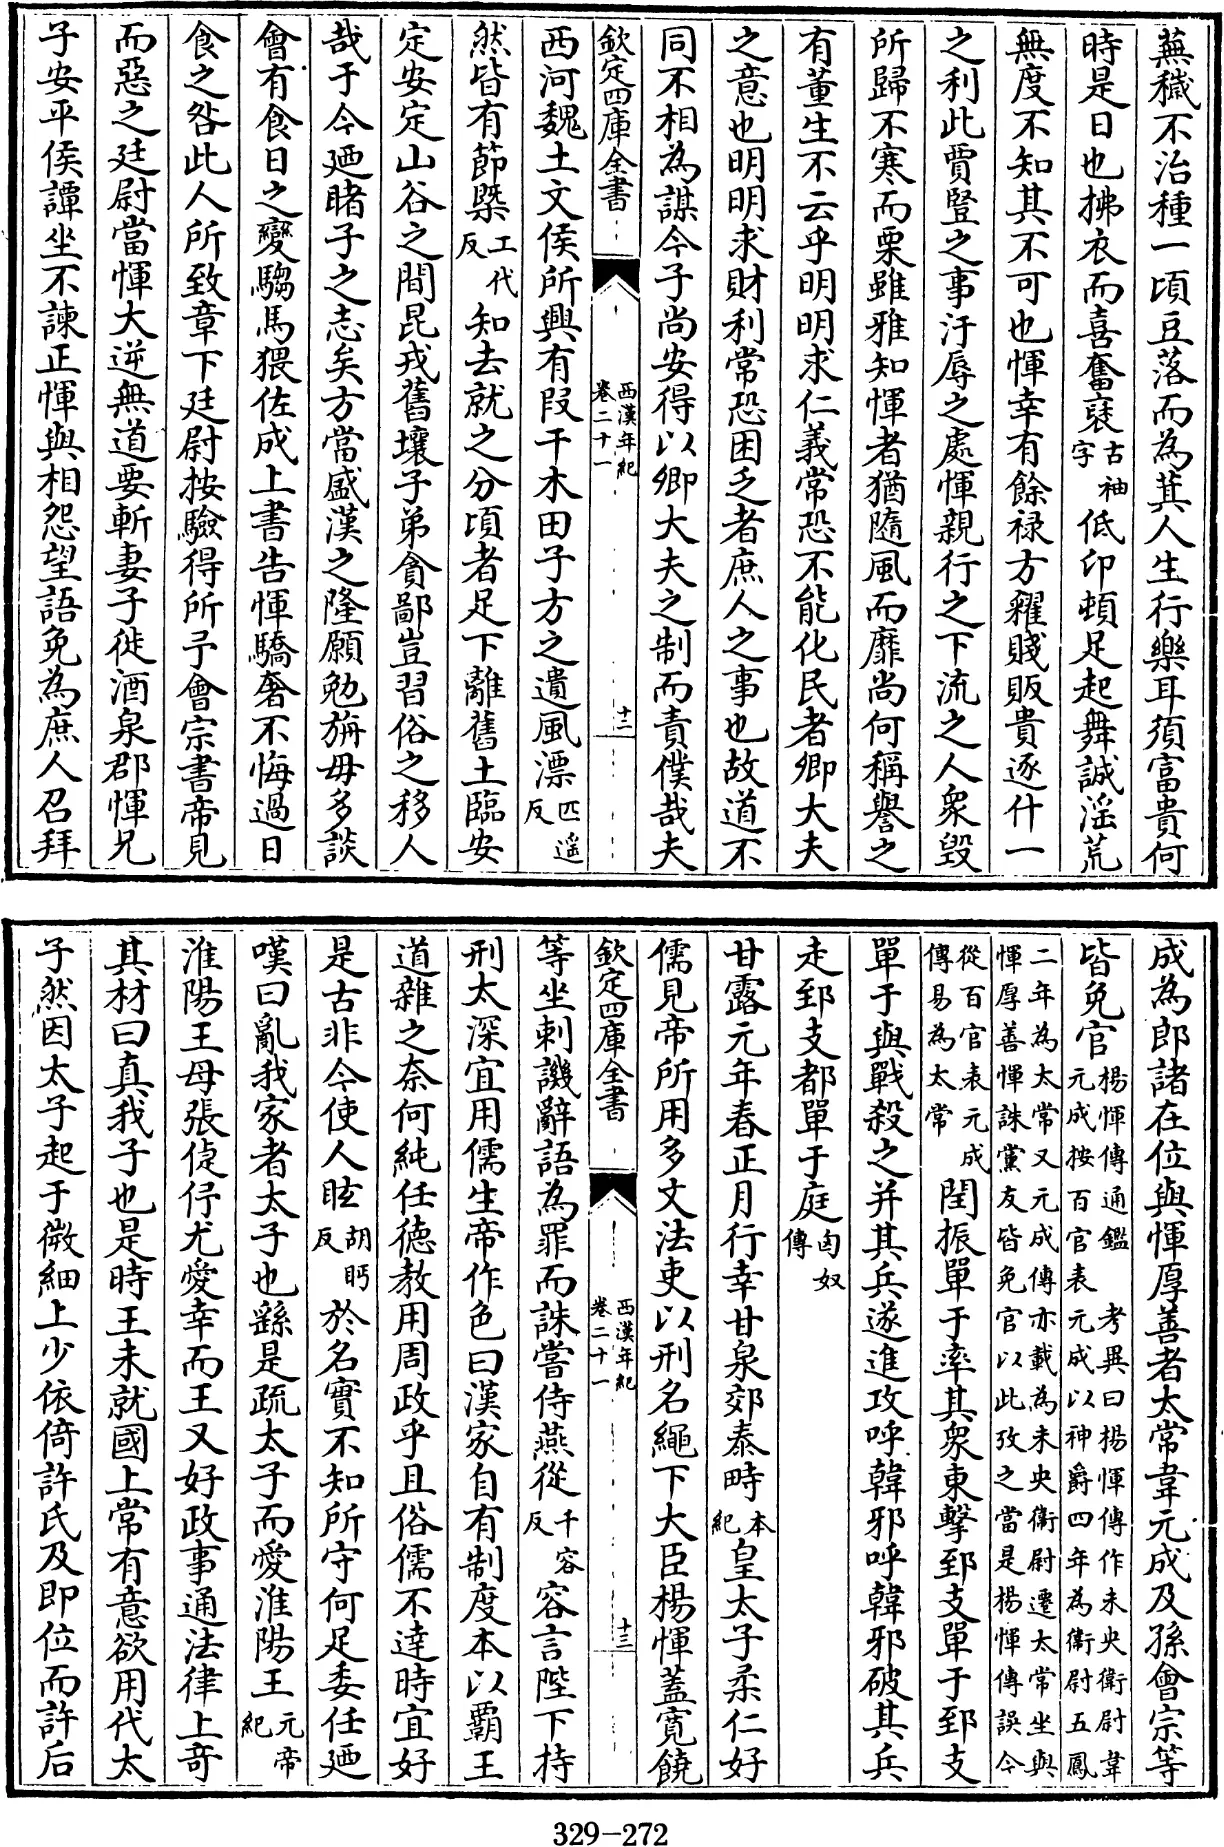 蕪穢不治種一頃豆落而為萁人生行樂耳須富貴何
時是日也拂衣而喜奮䘳古袖字低卬頓足起舞誠滛荒
無度不知其不可也惲幸有餘禄方糴賤販貴逐什一
之利此賈豎之事汙辱之處惲親行之下流之人衆毀
所歸不寒而栗雖雅知惲者猶隨風而靡尚何稱譽之
有董生不云乎明明求仁義常恐不能化民者卿大夫
之意也明明求財利常恐困乏者庶人之事也故道不
同不相為謀今子尚安得以卿大夫之制而責僕哉夫
欽定四庫全書 西漢年紀卷二十一 十二
西河魏土文侯所興有段干木田子方之遺風漂匹遥反
然皆有節槩工代反知去就之分頃者足下離舊土臨安
定安定山谷之間昆戎舊壤子弟貪鄙豈習俗之移人
哉于今廼睹子之志矣方當盛漢之隆願勉旃毋多談
會有食日之變騶馬猥佐成上書告惲驕奢不悔過日
食之咎此人所致章下廷尉按驗得所予會宗書帝見
而惡之廷尉當惲大逆無道要斬妻子徙酒泉郡惲兄
子安平侯譚坐不諫正惲與相怨望語免為庶人召拜
成為郎諸在位與惲厚善者太常韋元成及孫會宗等
皆免官楊惲傳通鑑 考異曰楊惲傳作未央衛尉韋元成按百官表元成以神爵四年為衛尉五鳳
二年為太常又元成傳亦載為未央衛尉遷太常坐與惲厚善惲誅黨友皆免官以此攷之當是楊惲傳誤今
從百官表元成傳易為太常閏振單于率其衆東擊郅支單于郅支
單于與戰殺之并其兵遂進攻呼韓邪呼韓邪破其兵
走郅支都單于庭匈奴傳
甘露元年春正月行幸甘泉郊泰畤本紀皇太子柔仁好
儒見帝所用多文法吏以刑名繩下大臣楊惲蓋寛饒
欽定四庫全書 西漢年紀卷二十一 十三
等坐刺譏辭語為罪而誅嘗侍燕從千容反容言陛下持
刑太深宜用儒生帝作色曰漢家自有制度本以霸王
道雜之奈何純任徳教用周政乎且俗儒不達時宜好
是古非今使人眩胡眄反於名實不知所守何足委任廼
嘆曰亂我家者太子也繇是疏太子而愛淮陽王元帝紀
淮陽王母張倢伃尤愛幸而王又好政事通法律上竒
其材曰真我子也是時王未就國上常有意欲用代太
子然因太子起于微細上少依倚許氏及即位而許后
329-272